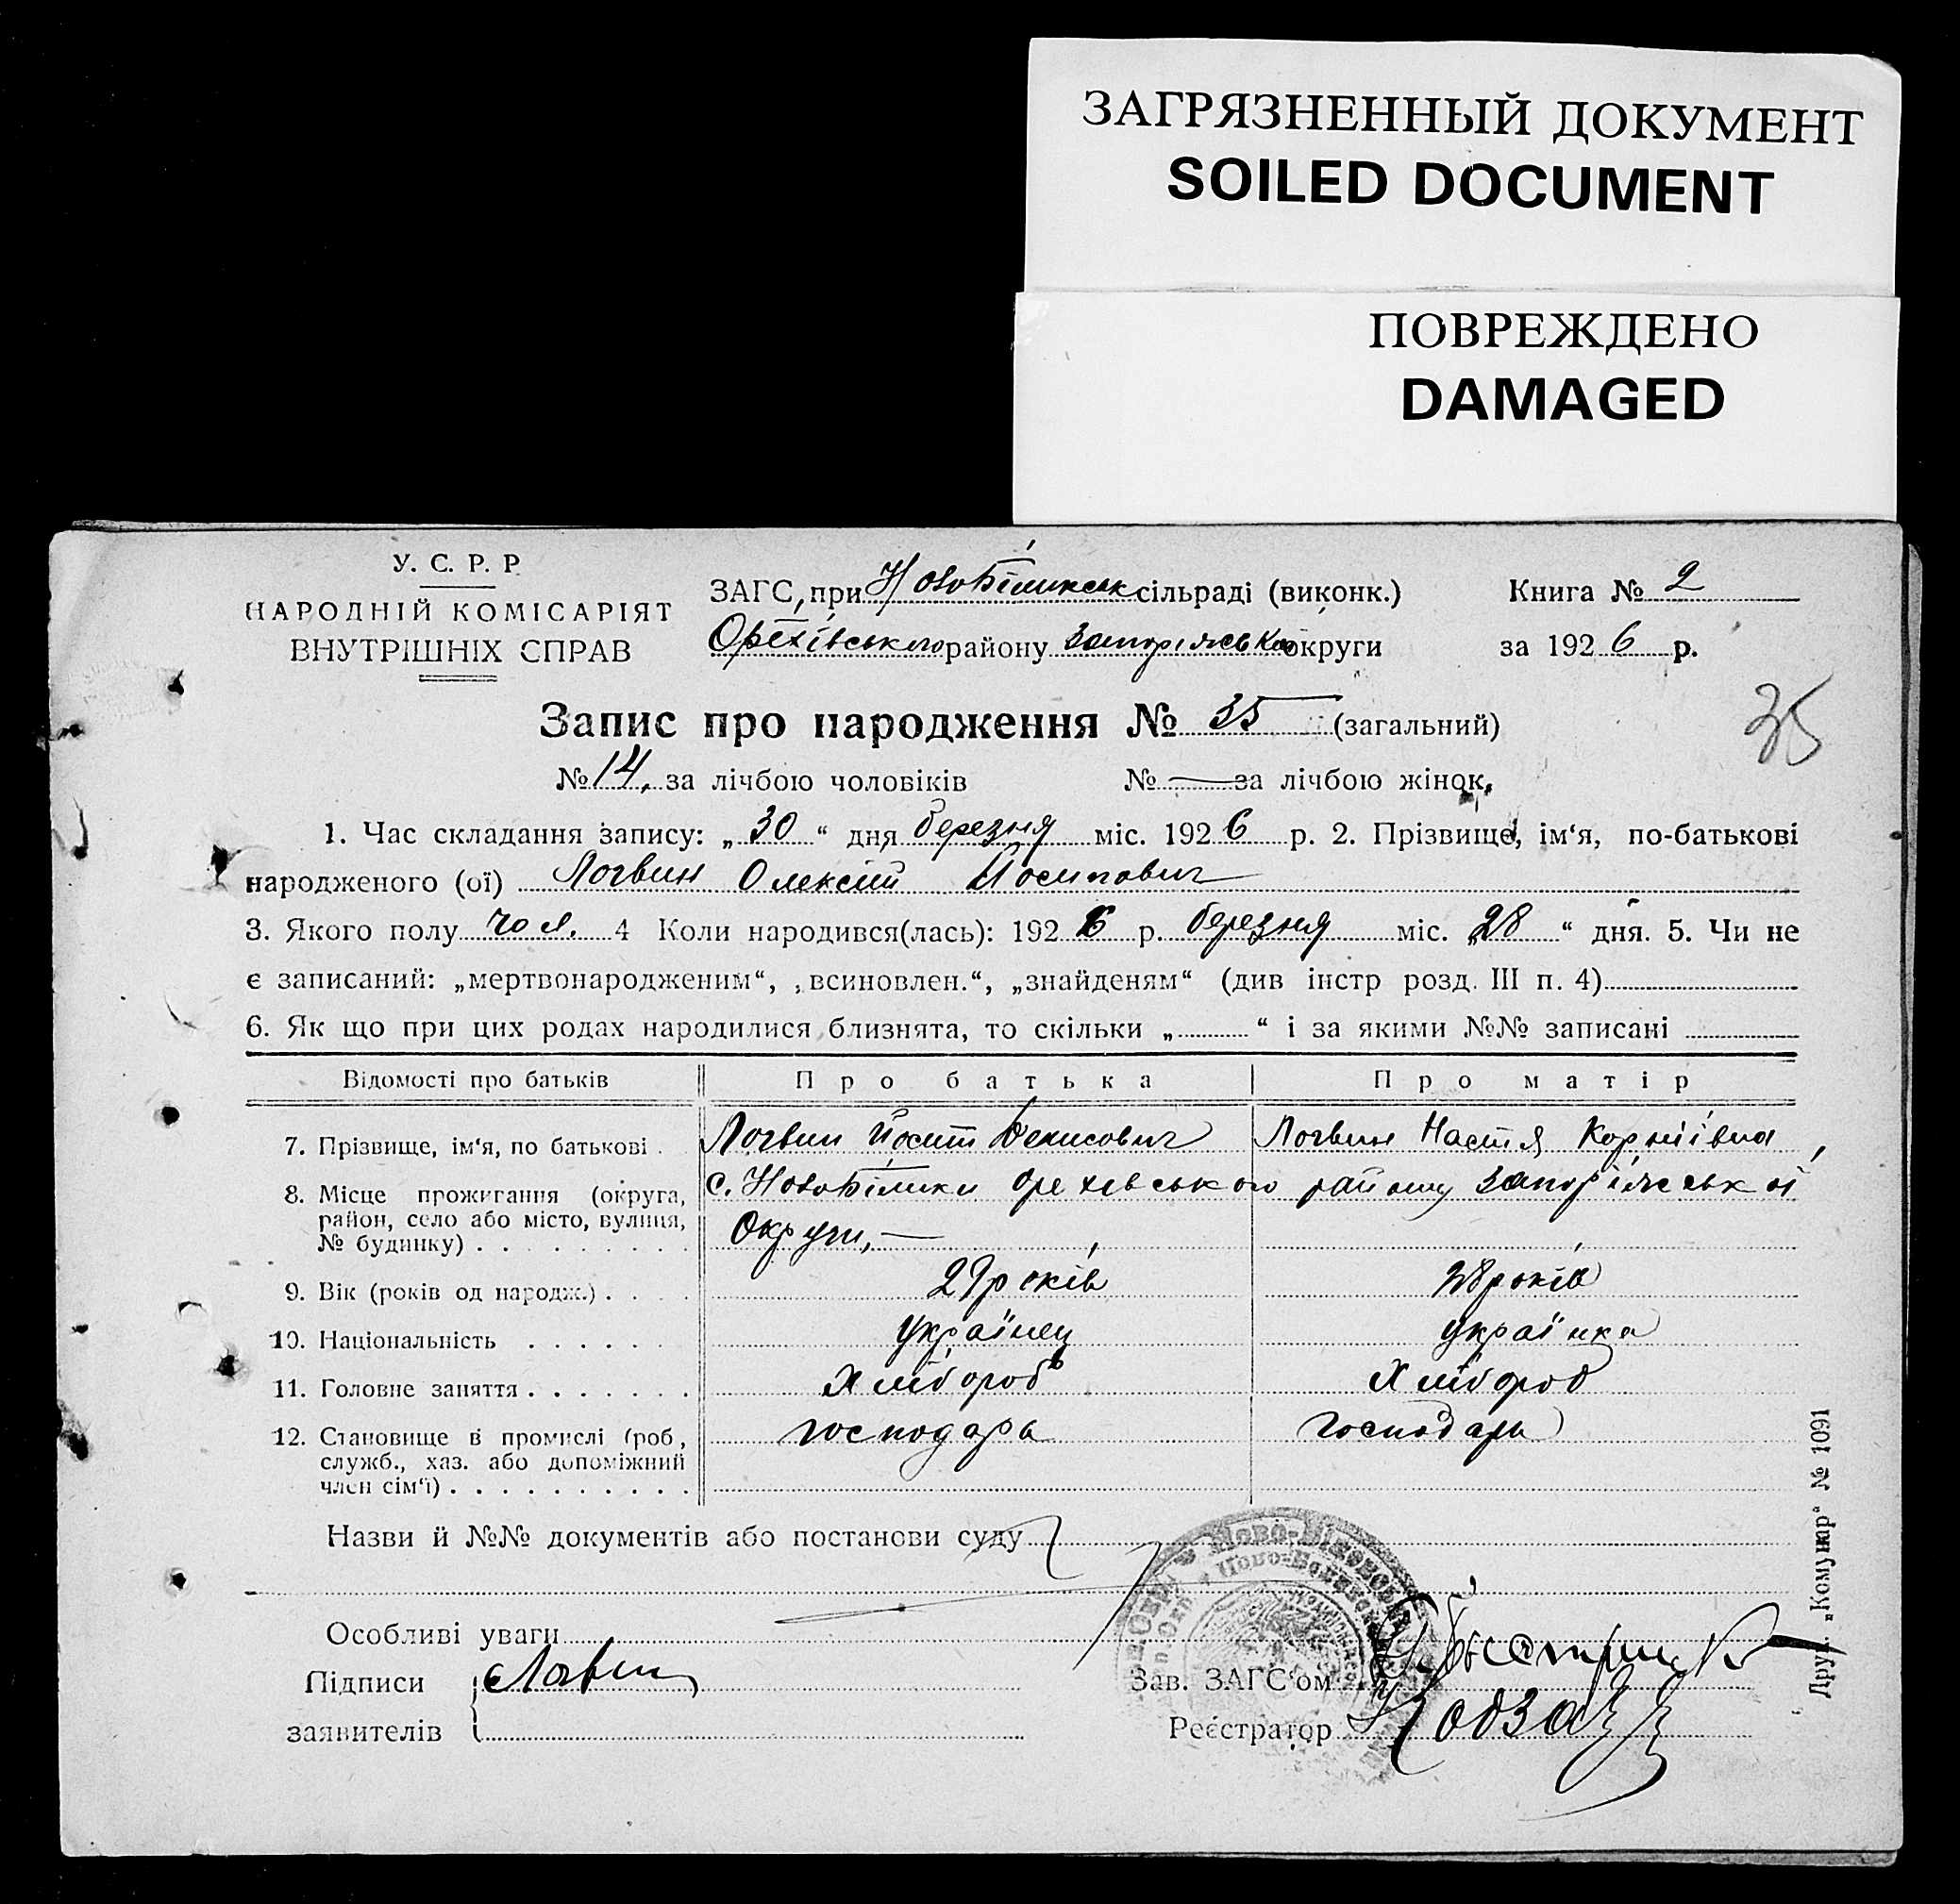 ЗАГРЯЗНЕННЫЙ ДОКУМЕНТ
SOILED DOCUMENT
ПОВРЕЖДЕНО
DAMAGED
У. С. Р. Р
НАРОДНІЙ КОМІСАРІЯТ
ВНУТРІШНІХ СПРАВ
ЗАГС, при НовоБілинськ сільраді (виконк.)
Орехівського району Запоріжсько округи
Книга № 2
за 1926 р.
Запис про народження № 35 (загальний)
35
№ 14, за лічбою чоловіків № — за лічбою жінок,
1. Час складання запису: „ 30 “ дня березня міс. 1926 р. 2. Прізвище, ім‘я, по-батькові
народженого (ої) Логвин Олексій Йосипович
3. Якого полу чол. 4 Коли народився(лась): 1926 р. березня міс. „28“ дня. 5. Чи не
є записаний: „мертвонародженим“, „всиновлен.“, „знайденям“ (див інстр розд. III п. 4)
6. Як що при цих родах народилися близнята, то скільки „ “ і за якими №№ записані
Відомості про батьків Про батька Про матір
7. Прізвище, ім‘я, по батькові . Логвин Йосип Денисович Логвин Настя Корніївна
8. Місце прожигання (округа, с. НовоБілики Орехівського району Запоріжської
район, село або місто, вулиця,
№ будинку) . . . . . . . . . Округи, —
9. Вік (років од народж.) . . . . 29 років 28 років
10. Національність . . . . . . Українец українка
11. Головне заняття . . . . . . . Хлібороб Хлібороб
12. Становище в промислі (роб, господарь господарь
служб., хаз. або допоміжний
член сім‘ї) . . . . . . . . . .
Назви й №№ документів або постанови суду
Особливі уваги
Підписи Логвин
заявителів
Зав. ЗАГС‘ом
Реєстратор Кобза
Друк. „Комунар“ № 1091